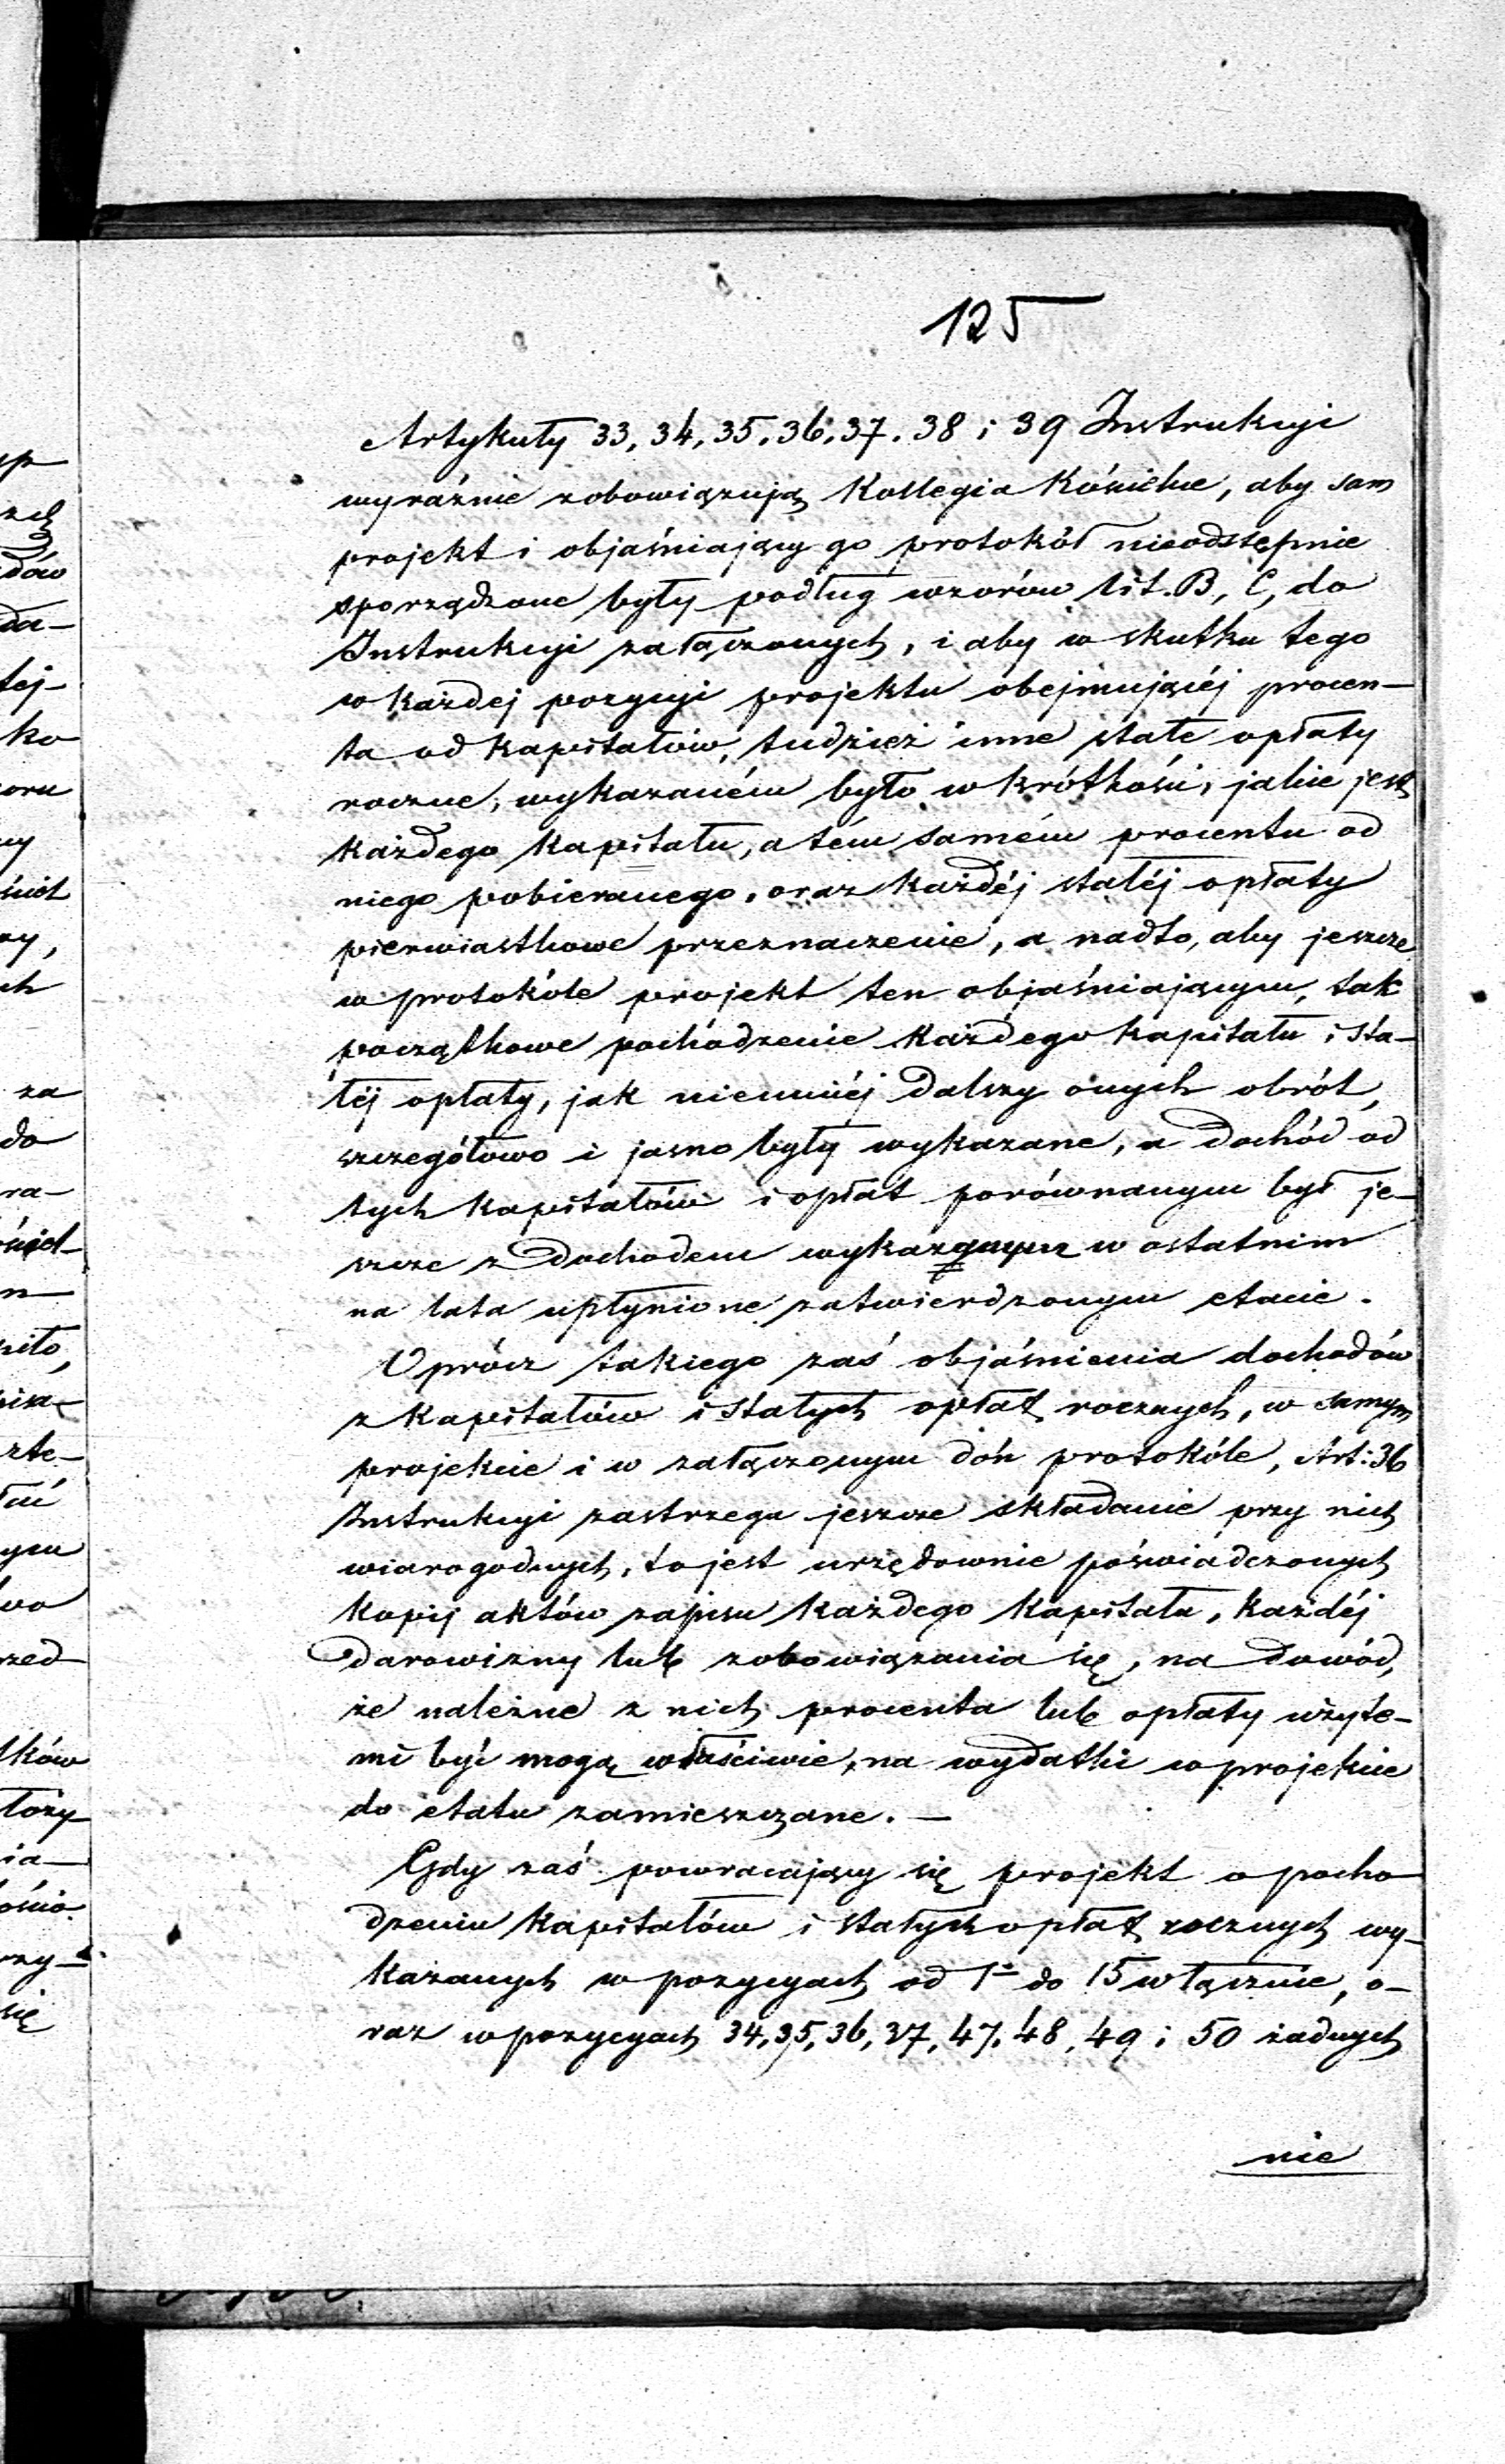 125
Artykuły 33, 34, 35, 36, 37, 38 i 39 Instrukcyi
wyraźnie zobowiązują Kollegia Kościelne, aby sam
projekt i objaśniający go protokół nieodstępnie
sporządzone były podług wzorów lit. B, C, do
Instrukcyi załączonych, i aby w skutku tego
w każdej pozycyi projektu obejmującéj procen-
ta od kapitałów, tudzież inne stałe opłaty
roczne, wykazaném było w krótkości, jakie jest
każdego kapitału, a tém samém procentu od
niego pobieranego, oraz każdéj stałéj opłaty
pierwiastkowe przeznaczenie, a nadto, aby jeszcze
w protokóle projekt ten objaśniającym, tak
początkowe pochodzenie każdego kapitału i sta-
łéj opłaty, jak niemniéj dalszy onych obrót,
szczegółowo i jasno były wykazane, a dochód od
tych kapitałów i opłat porównanym był je-
szcze z dochodem wykazanym w ostatnim
na lata upłynione zatwierdzonym etacie.
Oprócz takiego zaś objaśnienia dochodów
z kapitałów i stałych opłat rocznych, w samym
projekcie i w załączonym doń protokóle, Art: 36
Instrukcyi zastrzega jeszcze składanie przy nich
wiarogodnych, to jest urzędownie poświadczonych
kopij aktów zapisu każdego kapitału, każdéj
darowizny lub zobowiązania się, na dowód,
że należne z nich procenta lub opłaty użyte-
mi być mogą właściwie, na wydatki w projekcie
do etatu zamieszczane. —
Gdy zaś powracający się projekt o pocho
dzeniu kapitałów i stałych opłat rocznych wy-
kazanych w pozycyach od 1 do 15 włącznie, o-
raz w pozycyach 34, 35, 36, 37, 47, 48, 49 i 50 żadnych
nie